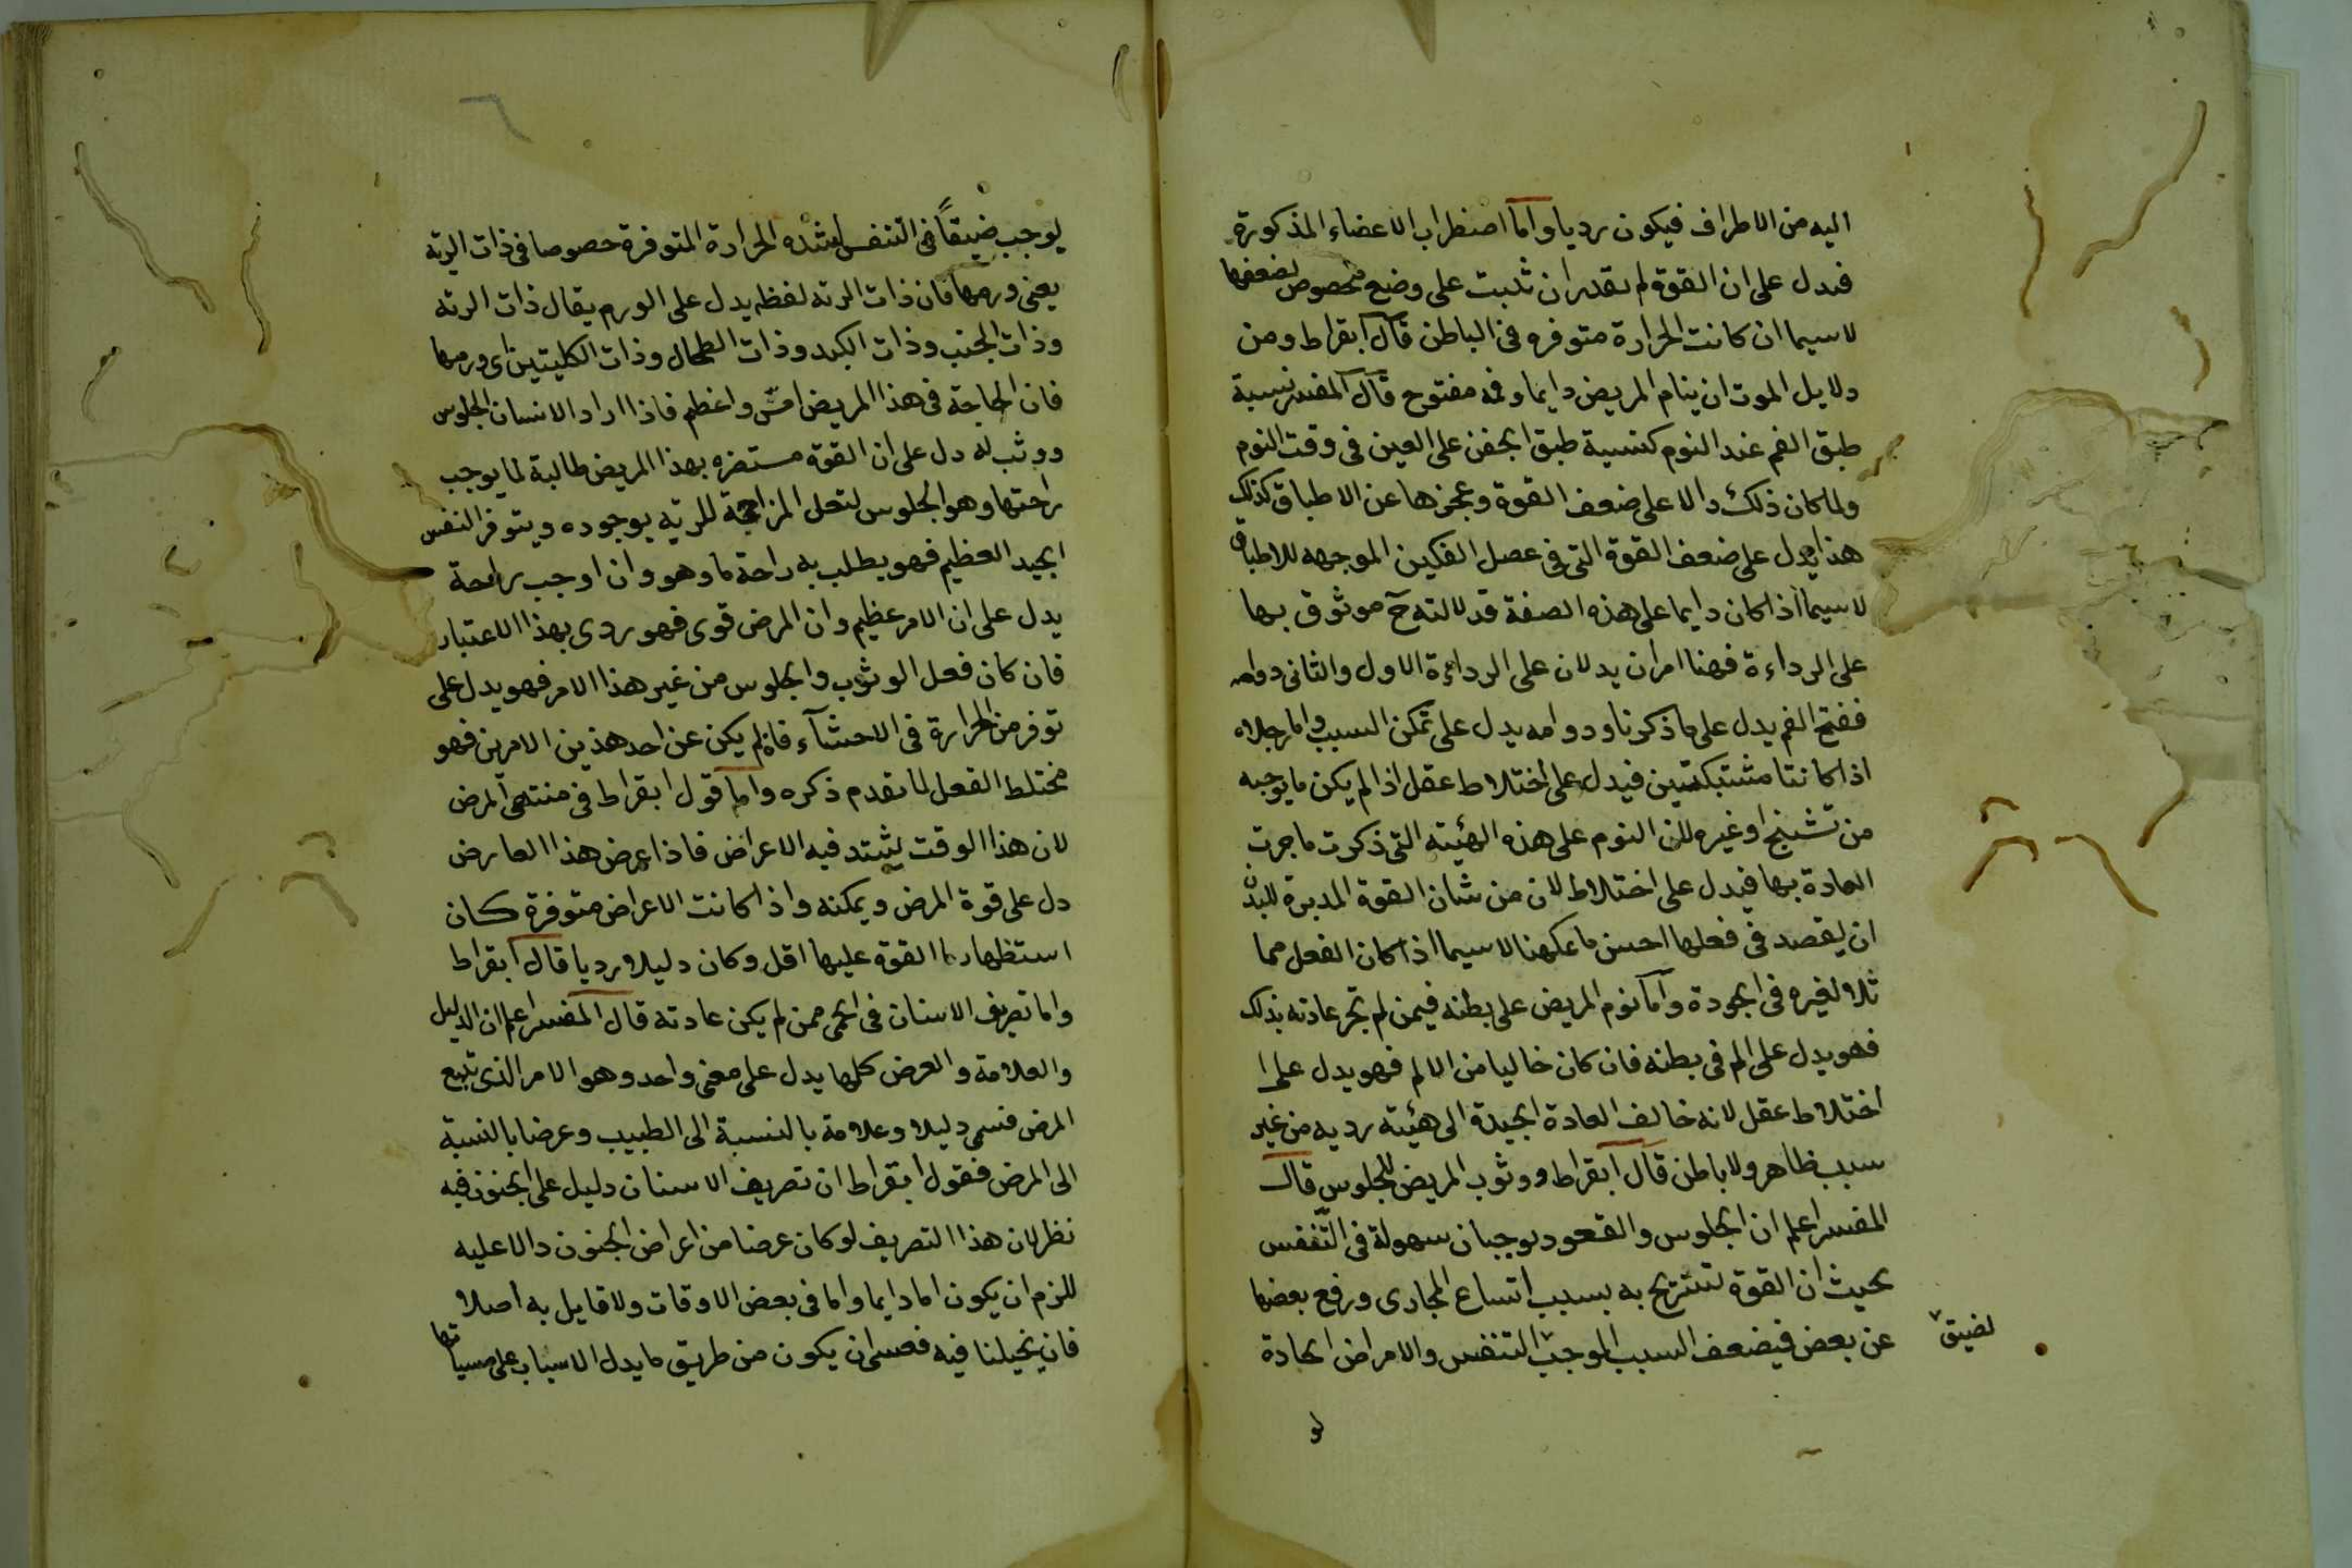 اليه من الاطراف فيكون رديا واما اضطراب الاعضاء المذكورة
فيدل على ان القوة لم تقدر ان تثبت على وضع مخصوص لضعفها
لاسيما ان كانت الحرارة متوفره فى الباطن قال ابقراط ومن
دلايل الموت ان ينام المريض دايما وفمه مفتوح قال المفسر نسبة
طبق الفم عند النوم كنسبة طبق الجفن على العين فى وقت النوم
ولما كان ذلك دالا على ضعف القوة وعجزها عن الاطباق كذلك
هذا يدل على ضعف القوة التى فى عضل الفكين الموجهه للاطباق
لاسيما اذا كان دايما على هذه الصفة فدلالته ح موثوق بها
على الرداءة فهنا امران يدلان على الرداءة الاول والثانى دوامه
ففتح الفم يدل على ما ذكرنا ودوامه يدل على تمكن السبب واما رجلاه
اذا كانتا مشتبكتين فيدل على اختلاط عقل اذا لم يكن ما يوجبه
من تشنج او غيره لان النوم على هذه الهيئه التى ذكرت ما جرت
العادة بها فيدل على اختلاط لان من شان القوة المدبرة للبدن
ان يقصد فى فعلها احسن ما يمكنها لاسيما اذا كان الفعل مما
ثلا لغيره فى الجودة واما نوم المريض على بطنه فيمن لم تجر عادته بذلك
فهو يدل على الم فى بطنه فان كان خاليا من الالم فهو يدل على
اختلاط عقل لانه خالف العادة الجيدة الى هيئته رديه من غير
سبب ظاهر ولا باطن قال ابقراط ووثوب المريض للجلوس قال
المفسر اعلم ان الجلوس والقعود يوجبان سهولة فى التنفس
بحيث ان القوة لتستريح به بسبب اتساع المجارى ورفع بعضها
عن بعض فيضعف السبب الموجب التنفس والامراض الحادة
لضيق
يوجب ضيقا فى التنفس لشده الحرارة المتوفرة خصوصا فى ذات الريه
يعنى ورمها فان ذات الريه لفظه يدل على الورم يقال ذات الريه
وذات الجنب وذات الكبد وذات الطحال وذات الكليتين اى ورمها
فان الحاجة فى هذا المريض امس واعظم فاذا اراد الانسان الجلوس
ووثب له دل على ان القوة مستضره بهذا المريض طالبة لما يوجب
راحتها وهو الجلوس لتعل المزاحمة للريه بوجوده ويتوفر النفس
الجيد العظيم فهو يطلب به راحة ما وهو وان اوجب راحة
يدل على ان الامر عظيم وان المرض قوى فهو ردى بهذا الاعتبار
فان كان فعل الوثوب والجلوس من غير هذا الامر فهو يدل على
توفر من الحرارة فى الاحشآء فان لم يكن عن احد هذين الامرين فهو
مختلط الفعل لما تقدم ذكره واما قول ابقراط فى منتهى المرض
لان هذا الوقت يشتد فيه الاعراض فاذا عرض هذا العارض
دل على قوة المرض وتمكنه واذا كانت الاعراض متوفرة كان
استظهار القوة عليها اقل وكان دليلا رديا قال ابقراط
واما تصريف الاسنان فى الحمى ممن لم يكن عادته قال المفسر اعلم ان الدليل
والعلامة والعرض كلها يدل على معنى واحد وهو الامر الذى تتبع
المرض فسمى دليلا وعلامة بالنسبة الى الطبيب وعرضا بالنسبة
الى المرض فقول ابقراط ان تصريف الاسنان دليل على الجنون فيه
نظر لان هذا التصريف لو كان عرضا من اعراض الجنون دالا عليه
للزم ان يكون اما دايما واما فى بعض الاوقات ولا قايل به اصلا
فان تخيلنا فيه فعسى ان يكون من طريق ما يدل الاسباب على مسبباتها